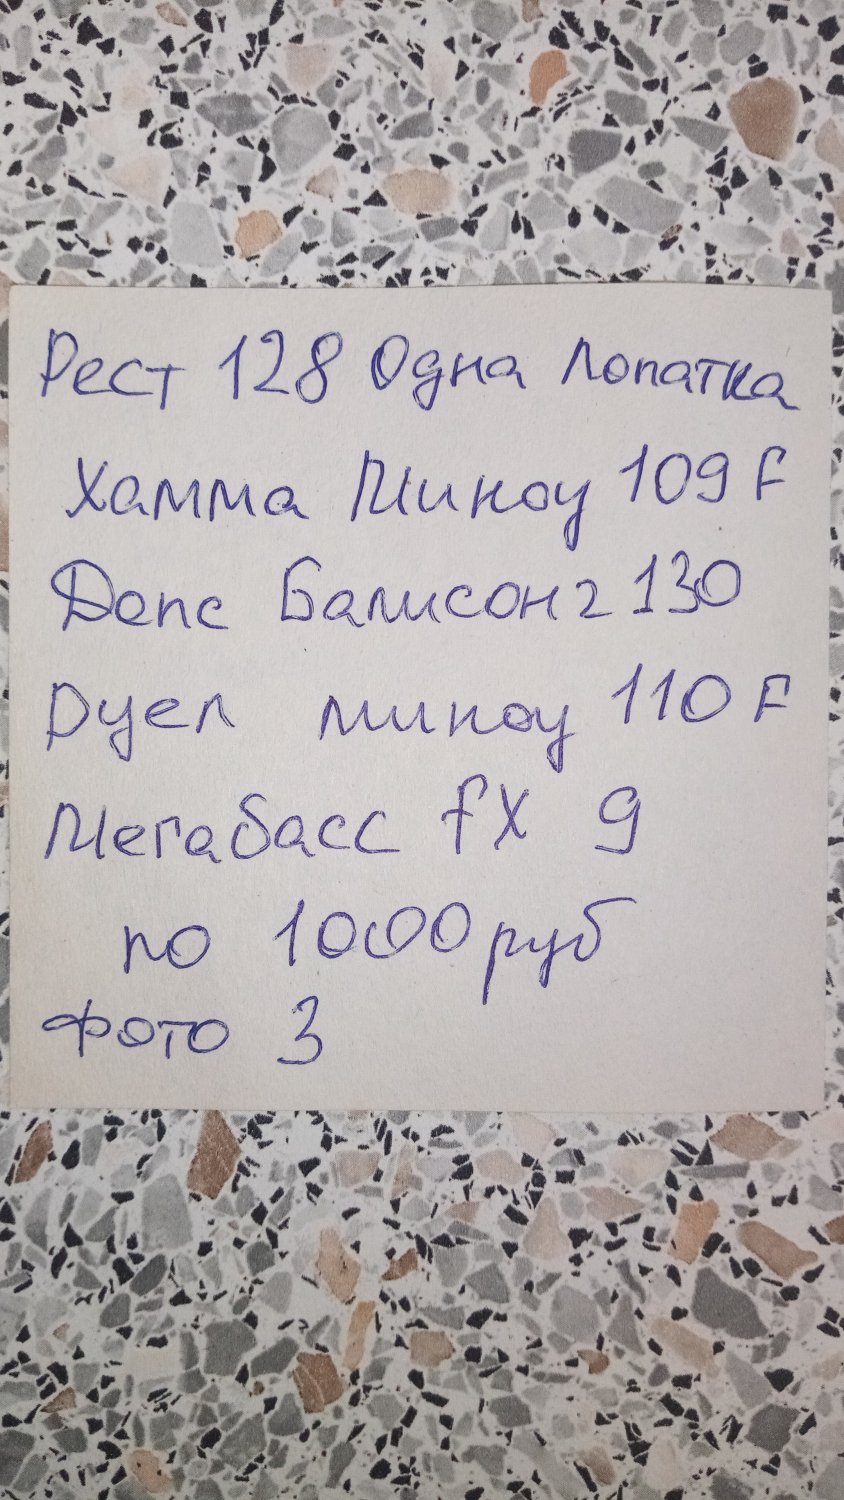 Рест 128 Одна лопатка
Хамма Миноу 109 F
Депс Балисонг 130
Дуел миноу 110 F
Мегабасс fX 9
по 1000 руб
Фото 3